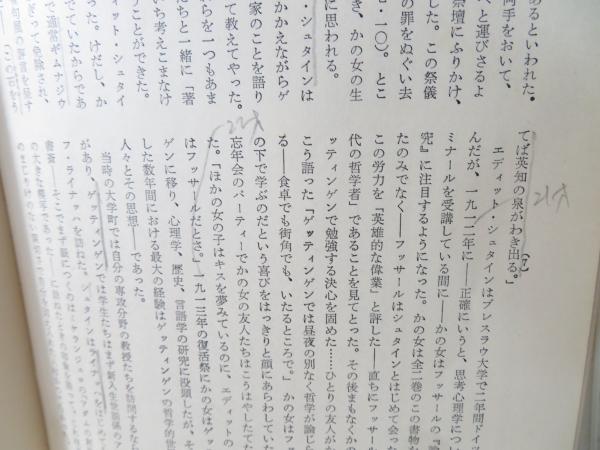 あるといわれた。
両手をおいて、
くと運びさるよ
祭壇にふりかけ、
した。この祭儀
の罪をぬぐい去
七・一〇)。とこ
き、かの女の生
に思われる。
・シュタインは
かかえながらゲ
家のことを語り
て教えてやった。
らを一つもあま
ちと一緒に「著
い考えこまなけ
うことができた。
ィット・シュタイ
った。けだし、か
ていたからであ
で通常ギムナジウ
てば英知の泉がわき出る。」
エディット・シュタインはブレスラウ大学で二年間ドイツ
んだが、一九一二年に――正確にいうと、思考心理学につい
ミナールを受講している間に――かの女はフッサールの『論
究』に注目するようになった。かの女は全二巻のこの書物な
たのみでなく――フッサールはシュタインとはじめて会った
この労力を「英雄的な偉業」と評した――直ちにフッサール
代の哲学者」であることを見てとった。その後まもなくかの
ッティンゲンで勉強する決心を固めた……ひとりの友人がか
こう語った「ゲッティンゲンでは昼夜の別なく哲学が論じら
る――食卓でも街角でも、いたるところで。」かの女はフッ
の下で学ぶのだという喜びをはっきりと顔にあらわしていた
忘年会のパーティーでかの女の友人たちはこうはやしたてた
た。「ほかの女の子はキスを夢みているのに、エディットの
はフッサールだとさ。」一九一三年の復活祭にかの女はゲッ
ゲンに移り、心理学、歴史、言語学の研究に没頭したが、そ
した数年間における最大の経験はゲッティンゲンの哲学的世
人々とその思想――であった。
当時の大学町では自分の専攻分野の教授たちを訪問するなら
があり、ゲッティンゲンでは学生たちはまず新入生
フ・ライナッハを訪ねた。シュタインは
21才
22才